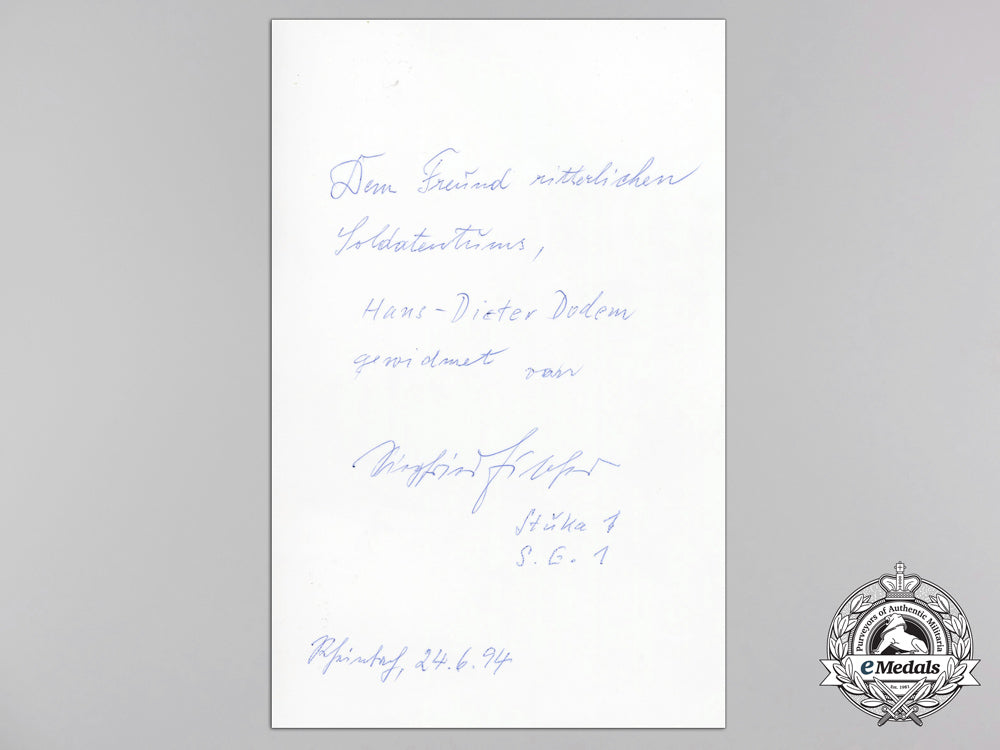 Dem Freund ritterlichen
Soldatentums,
Hans-Dieter Dodem
gewidmet von
Siegfried Fischer
Stuka 1
S.G. 1
Rheinbach, 24.6.94
Purveyors of Authentic Militaria
eMedals
Est. 1983